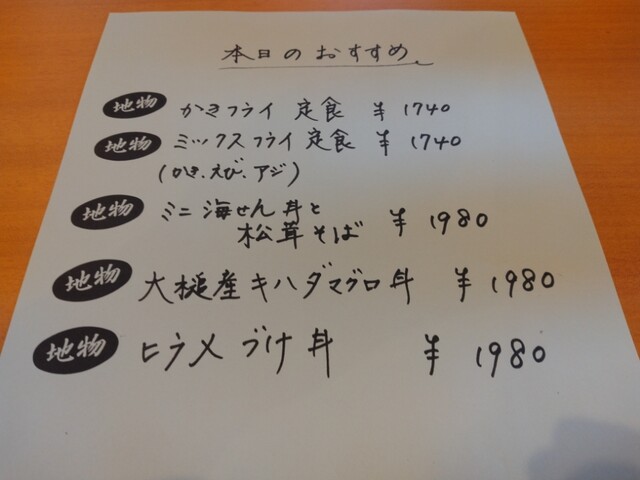 本日のおすすめ。
地物 かきフライ 定食 ¥ 1740
地物 ミックスフライ 定食 ¥ 1740
(かき、えび、アジ)
地物 ミニ 海せん丼と
松茸そば ¥ 1980
地物 大槌産キハダマグロ丼 ¥ 1980
地物 ヒラメ づけ 丼 ¥ 1980